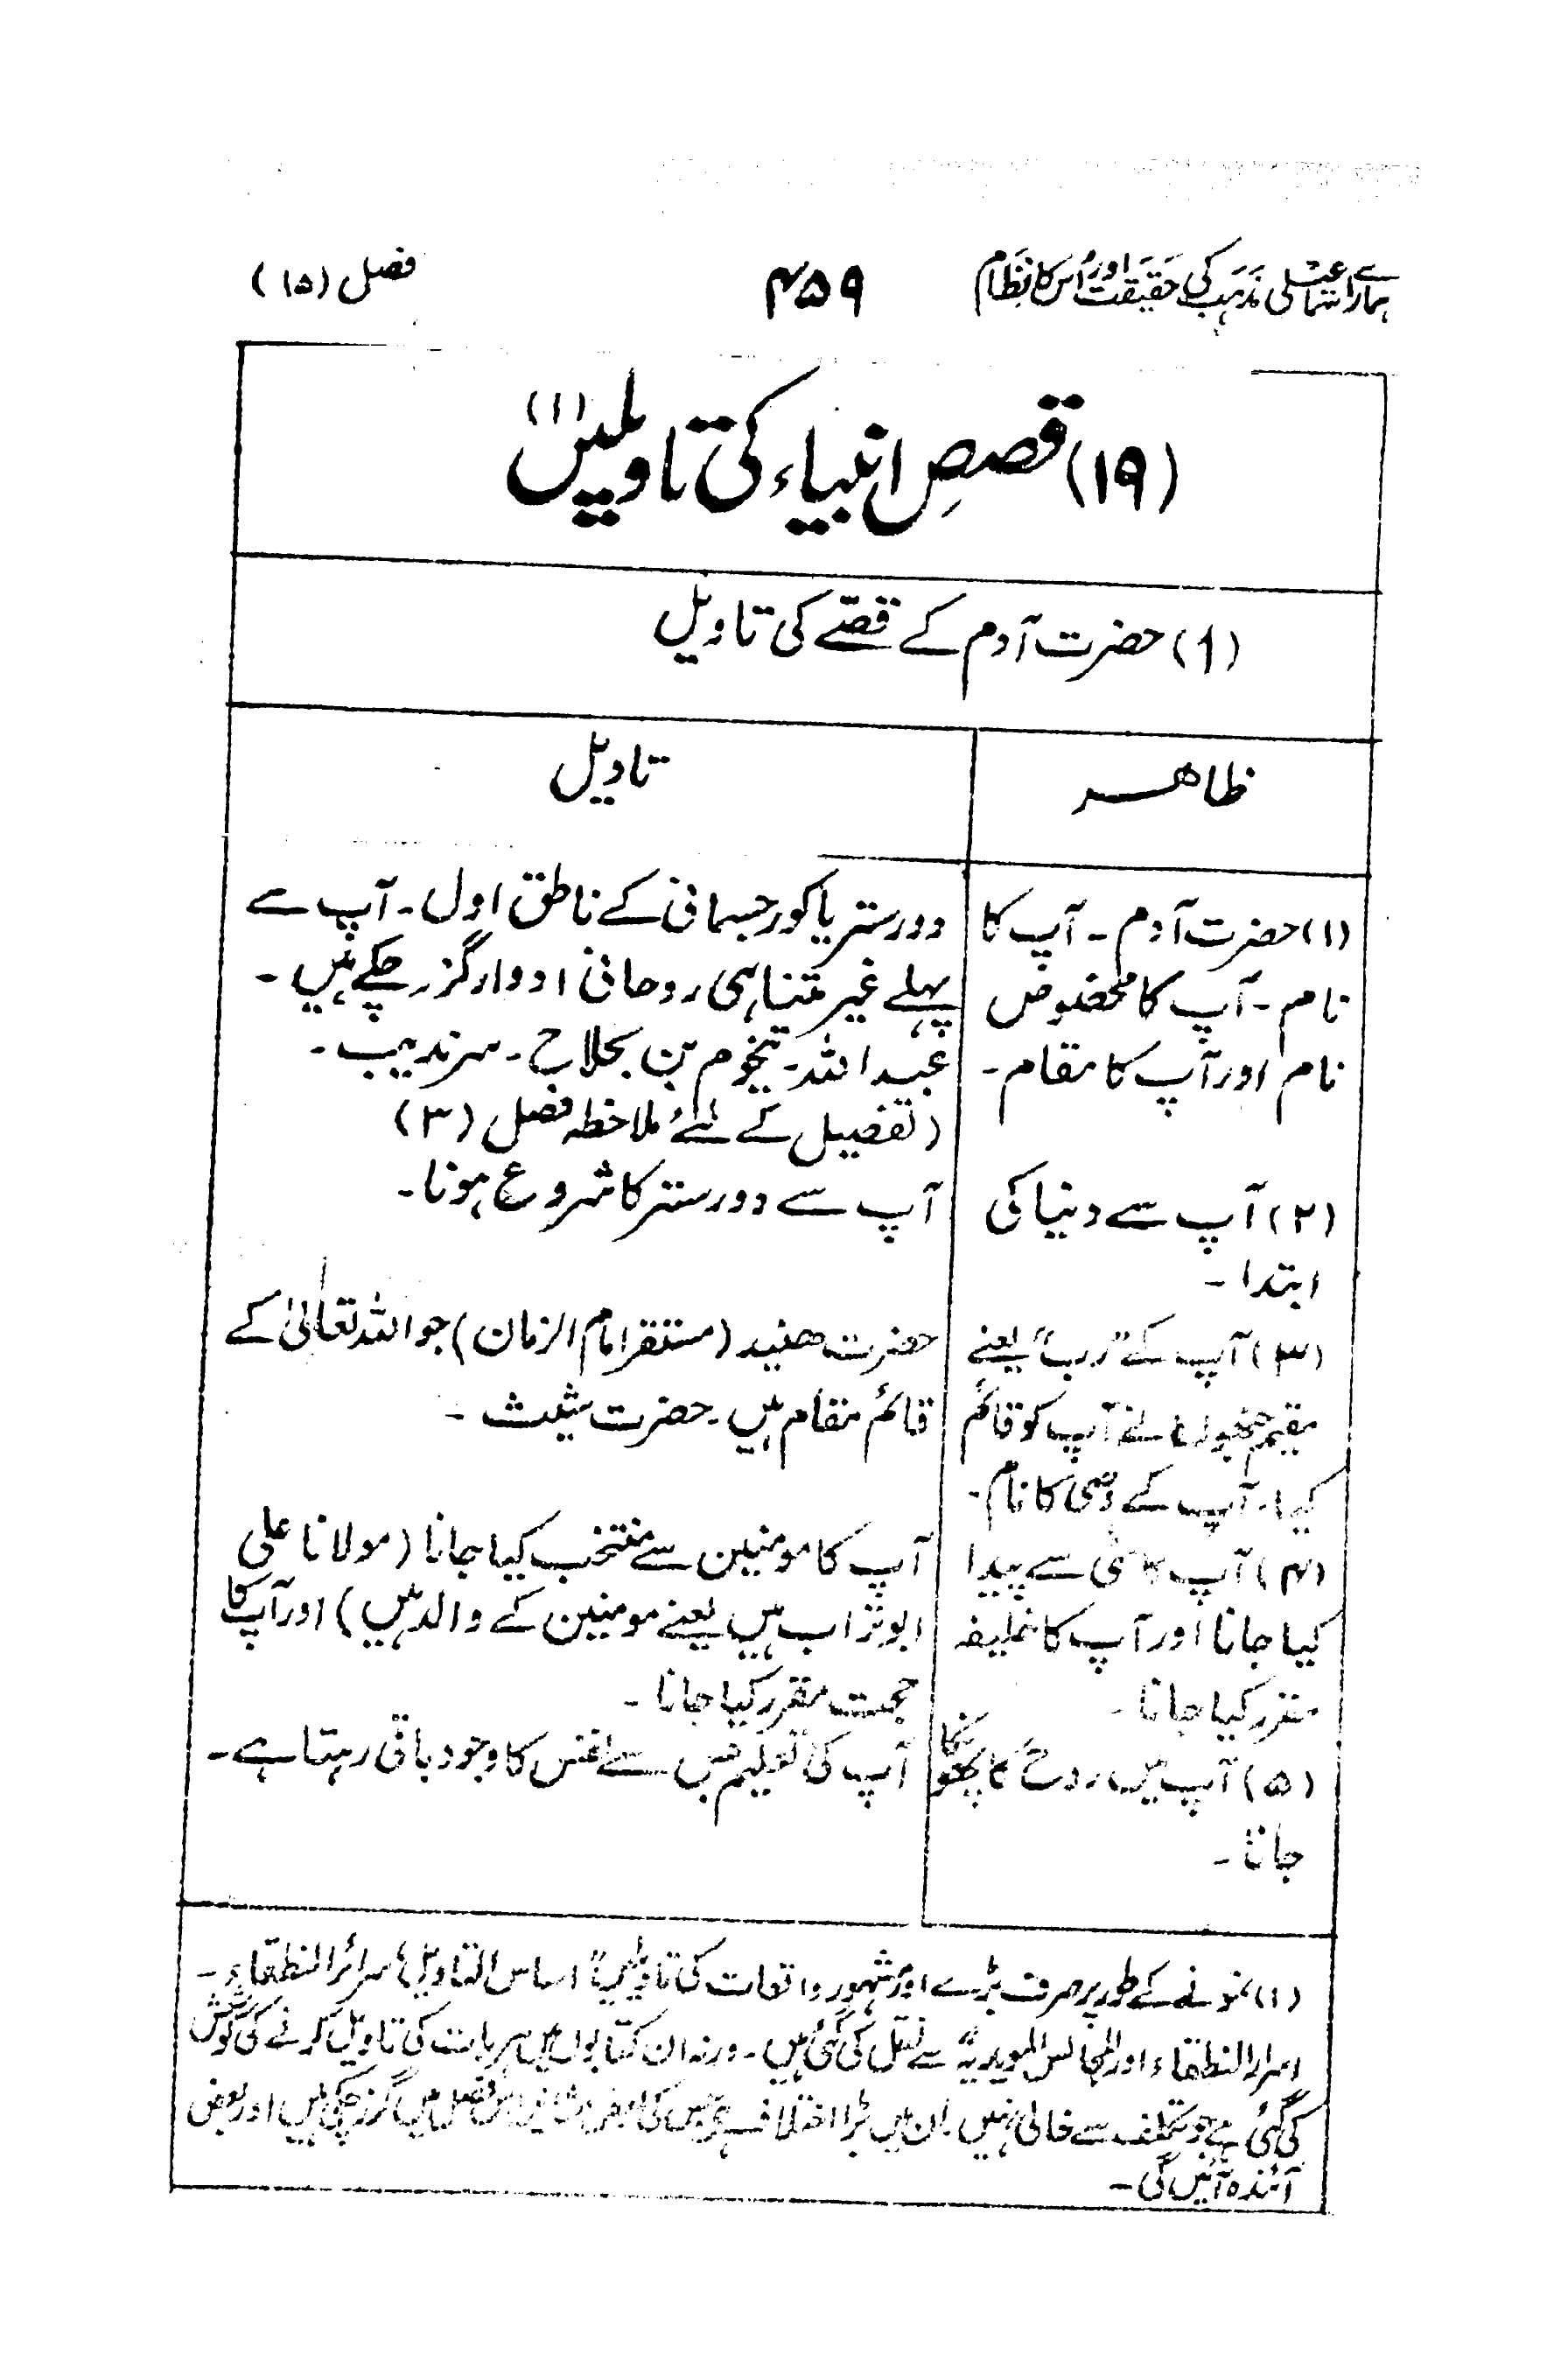 ہمارے اسماعیلی مذہب کی حقیقت اور اُس کا نظام
۴۵۹
فصل (۱۵)
(۱۹) قصصِ انبیاء کی تاویلیں (۱)
(1) حضرت آدم کے قصّے کی تاویل
ظاہر
تاویل
(۱) حضرت آدم ۔ آپ کا
نام ۔ آپ کا مخصوص
نام اور آپ کا مقام ۔
دور ستر یا کور جسمانی کے ناطق اول ۔ آپ سے
پہلے غیر متناہی روحانی ادوار گزر چکے ہیں ۔
عبد اللہ ۔ تخوم بن بجلاح ۔ سرندیب ۔
(تفصیل کے لئے ملاحظہ فصل (۳)
(۲) آپ سے دنیا کی
ابتدا ۔
آپ سے دور ستر کا شروع ہونا ۔
(۳) آپ کے "رب" یعنے
مقیم جنھوں نے آپ کو قائم
کیا ۔ آپ کے وصی کا نام ۔
حضرت ھنید (مستقر امام الزمان) جو اللہ تعالیٰ کے
قائم مقام ہیں ۔ حضرت شیث ۔
(۴) آپ کا مٹی سے پیدا
کیا جانا اور آپ کا خلیفہ
مقرر کیا جانا ۔
آپ کا مومنین سے منتخب کیا جانا (مولانا علی
ابو تراب ہیں یعنے مومنین کے والد ہیں) اور آپ کا
حجت مقرر کیا جانا ۔
(۵) آپ میں روح کا پھونکا
جانا ۔
آپ کی تعلیم جس سے نفس کا وجود باقی رہتا ہے ۔
(۱) نمونے کے طور پر صرف بڑے اور مشہور واقعات کی تاویلیں "اساس التاویل، سرائر النطقاء ۔
اسرار النطقاء اور المجالس المویدیہ" سے نقل کی گئی ہیں ۔ ورنہ ان کتابوں میں ہر بات کی تاویل کرنے کی کوشش
کی گئی ہے جو تکلف سے خالی نہیں ۔ ان میں بڑا اختلاف ہے جس کی بعض مثالیں اس فصل میں گزر چکی ہیں اور بعض
آئندہ آئیں گی ۔